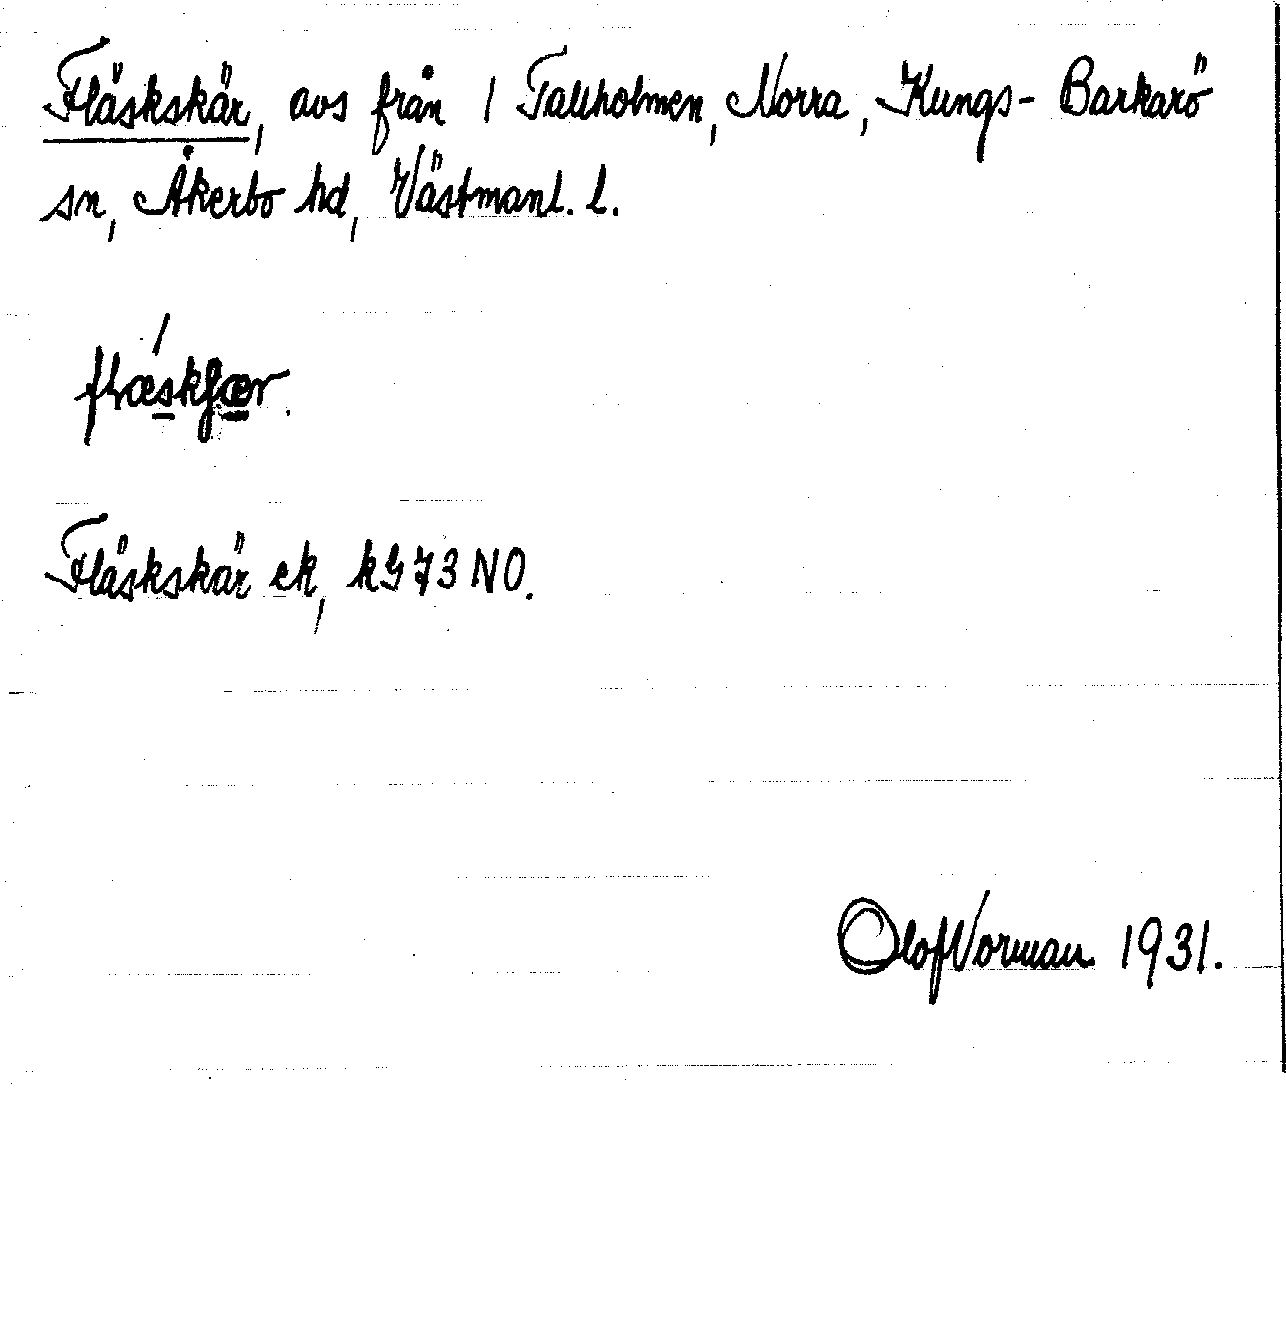 Fläskskär, avs från 1 Tallholmen, Norra, Kungs-Barkarö
sn, Åkerbo hd, Västmanl. l.
Fläskskär ek, kG 73 NO.
Olof Norman. 1931.